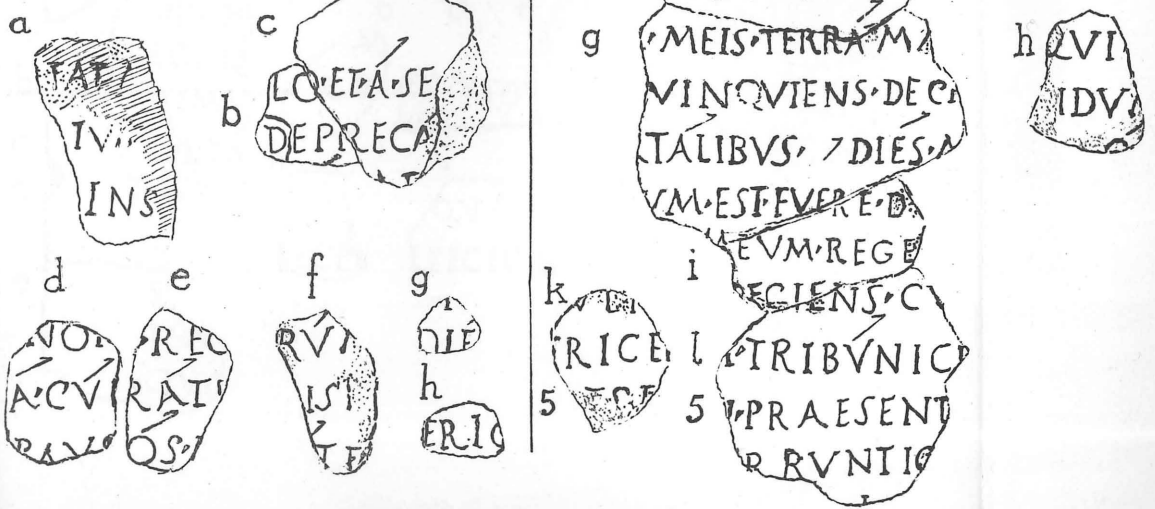 a
TAT
IV
INS
c
b
LO·ET·A·SE
DEPRECA
d
NO
A·CV
e
REC
RATI
OS·
f
RV
IST
TE
g
DIE
h
ERIC
g
·MEIS·TERRA·M
VINQVIENS·DEC
TALIBVS· DIES·
VM·EST·FVERE·D
i
EVM·REGE
ECIENS·C
k
RICE
5
l
·TRIBVNIC
5
·PRAESENT
RVNTIO
h
QVI
IDV